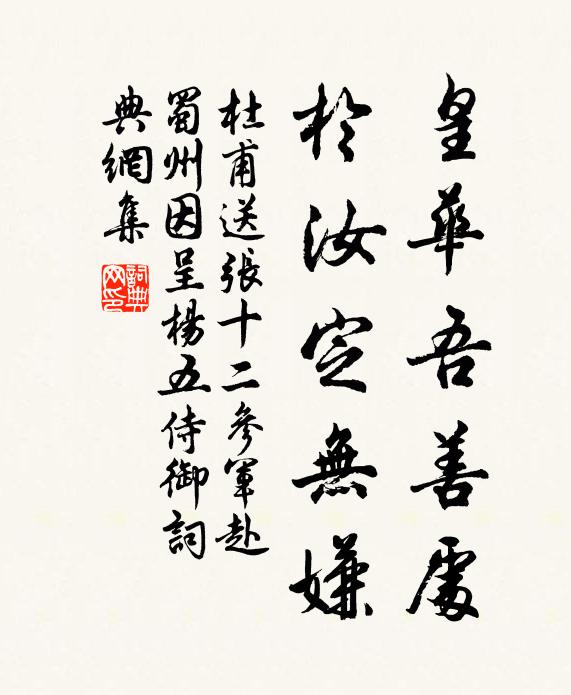 皇華吾善處
於汝定無嫌
杜甫送張十二參軍赴
蜀州因呈楊五侍御詞
典網集
詞典网印